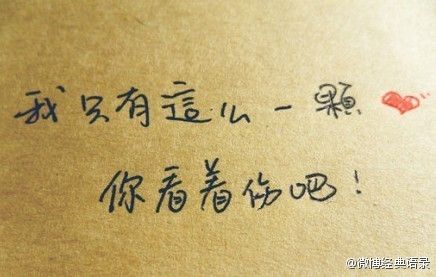 我只有這么一顆❤
你看着伤吧！
@微博经典语录